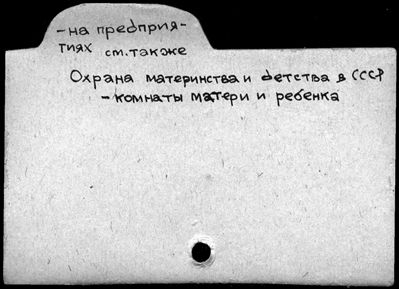 -на предприя-
тиях см. также
Охрана материнства и детства в СССР
- комнаты матери и ребенка